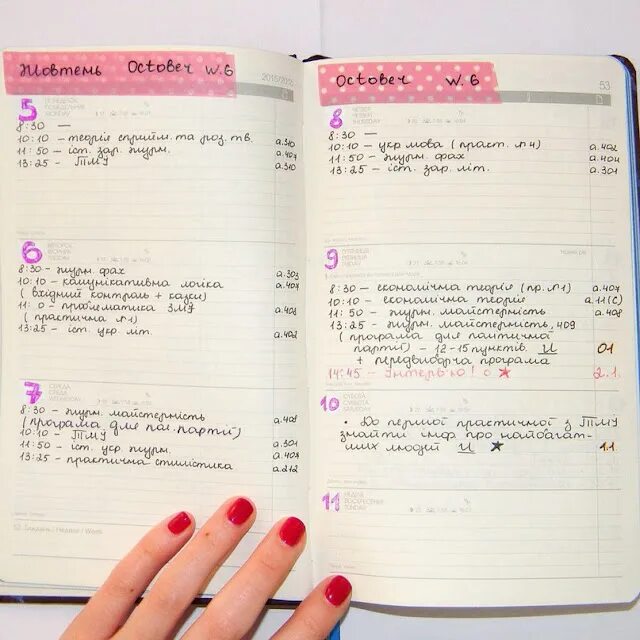 Жовтень October w.6
2015/2015
5
ПОНЕДЕЛЬНИК
MONDAY
8:30 —
10:10 – теорія сприйм. та роз. тв. а.310
11:50 – іст. зар. журн. а.407
13:25 – ТМУ а.310
6
ВТОРНИК
8:30 – журн. фах а.303
10:10 – комунікативна логіка а.407
(вхідний контроль + казки)
11: 0 – проблематика ЗМУ а.408
(практична №1)
13:25 – іст. укр. літ. а.402
7
СЕРЕДА
СРЕДА
WEDNESDAY
8:30 – журн. майстерність а.408
(програма для пол. партії)
10:10 – ТМУ
11:50 – іст. укр. журн. а.301
13:25 – практична стилістика а.212
October w.6
53
8
ЧЕТВЕР
ЧЕТВЕРГ
THURSDAY
8:30 —
10:10 – укр. мова (практ. №4) а.402
11:50 – журн. фах а.404
13:25 – іст. зар. літ. а.301
9
ПЯТНИЦА
FRIDAY
8:30 – економічна теорія (пр. №1) а.407
10:10 – економічна теорія а.11(с)
11:50 – журн. майстерність а.408
13:25 – журн. майстерність, 409
(програма для політичної
партії) – 12-15 пунктів.
+ передвиборча програма
14:45 – Інтерв'ю! о ★ 2.1.
10
СУБОТА
СУББОТА
SATURDAY
• До першої практичної з ТМУ
знайти інф про найбагат-
ших людей ★ 1.1.
11
НЕДІЛЯ
ВОСКРЕСЕНЬЕ
SUNDAY